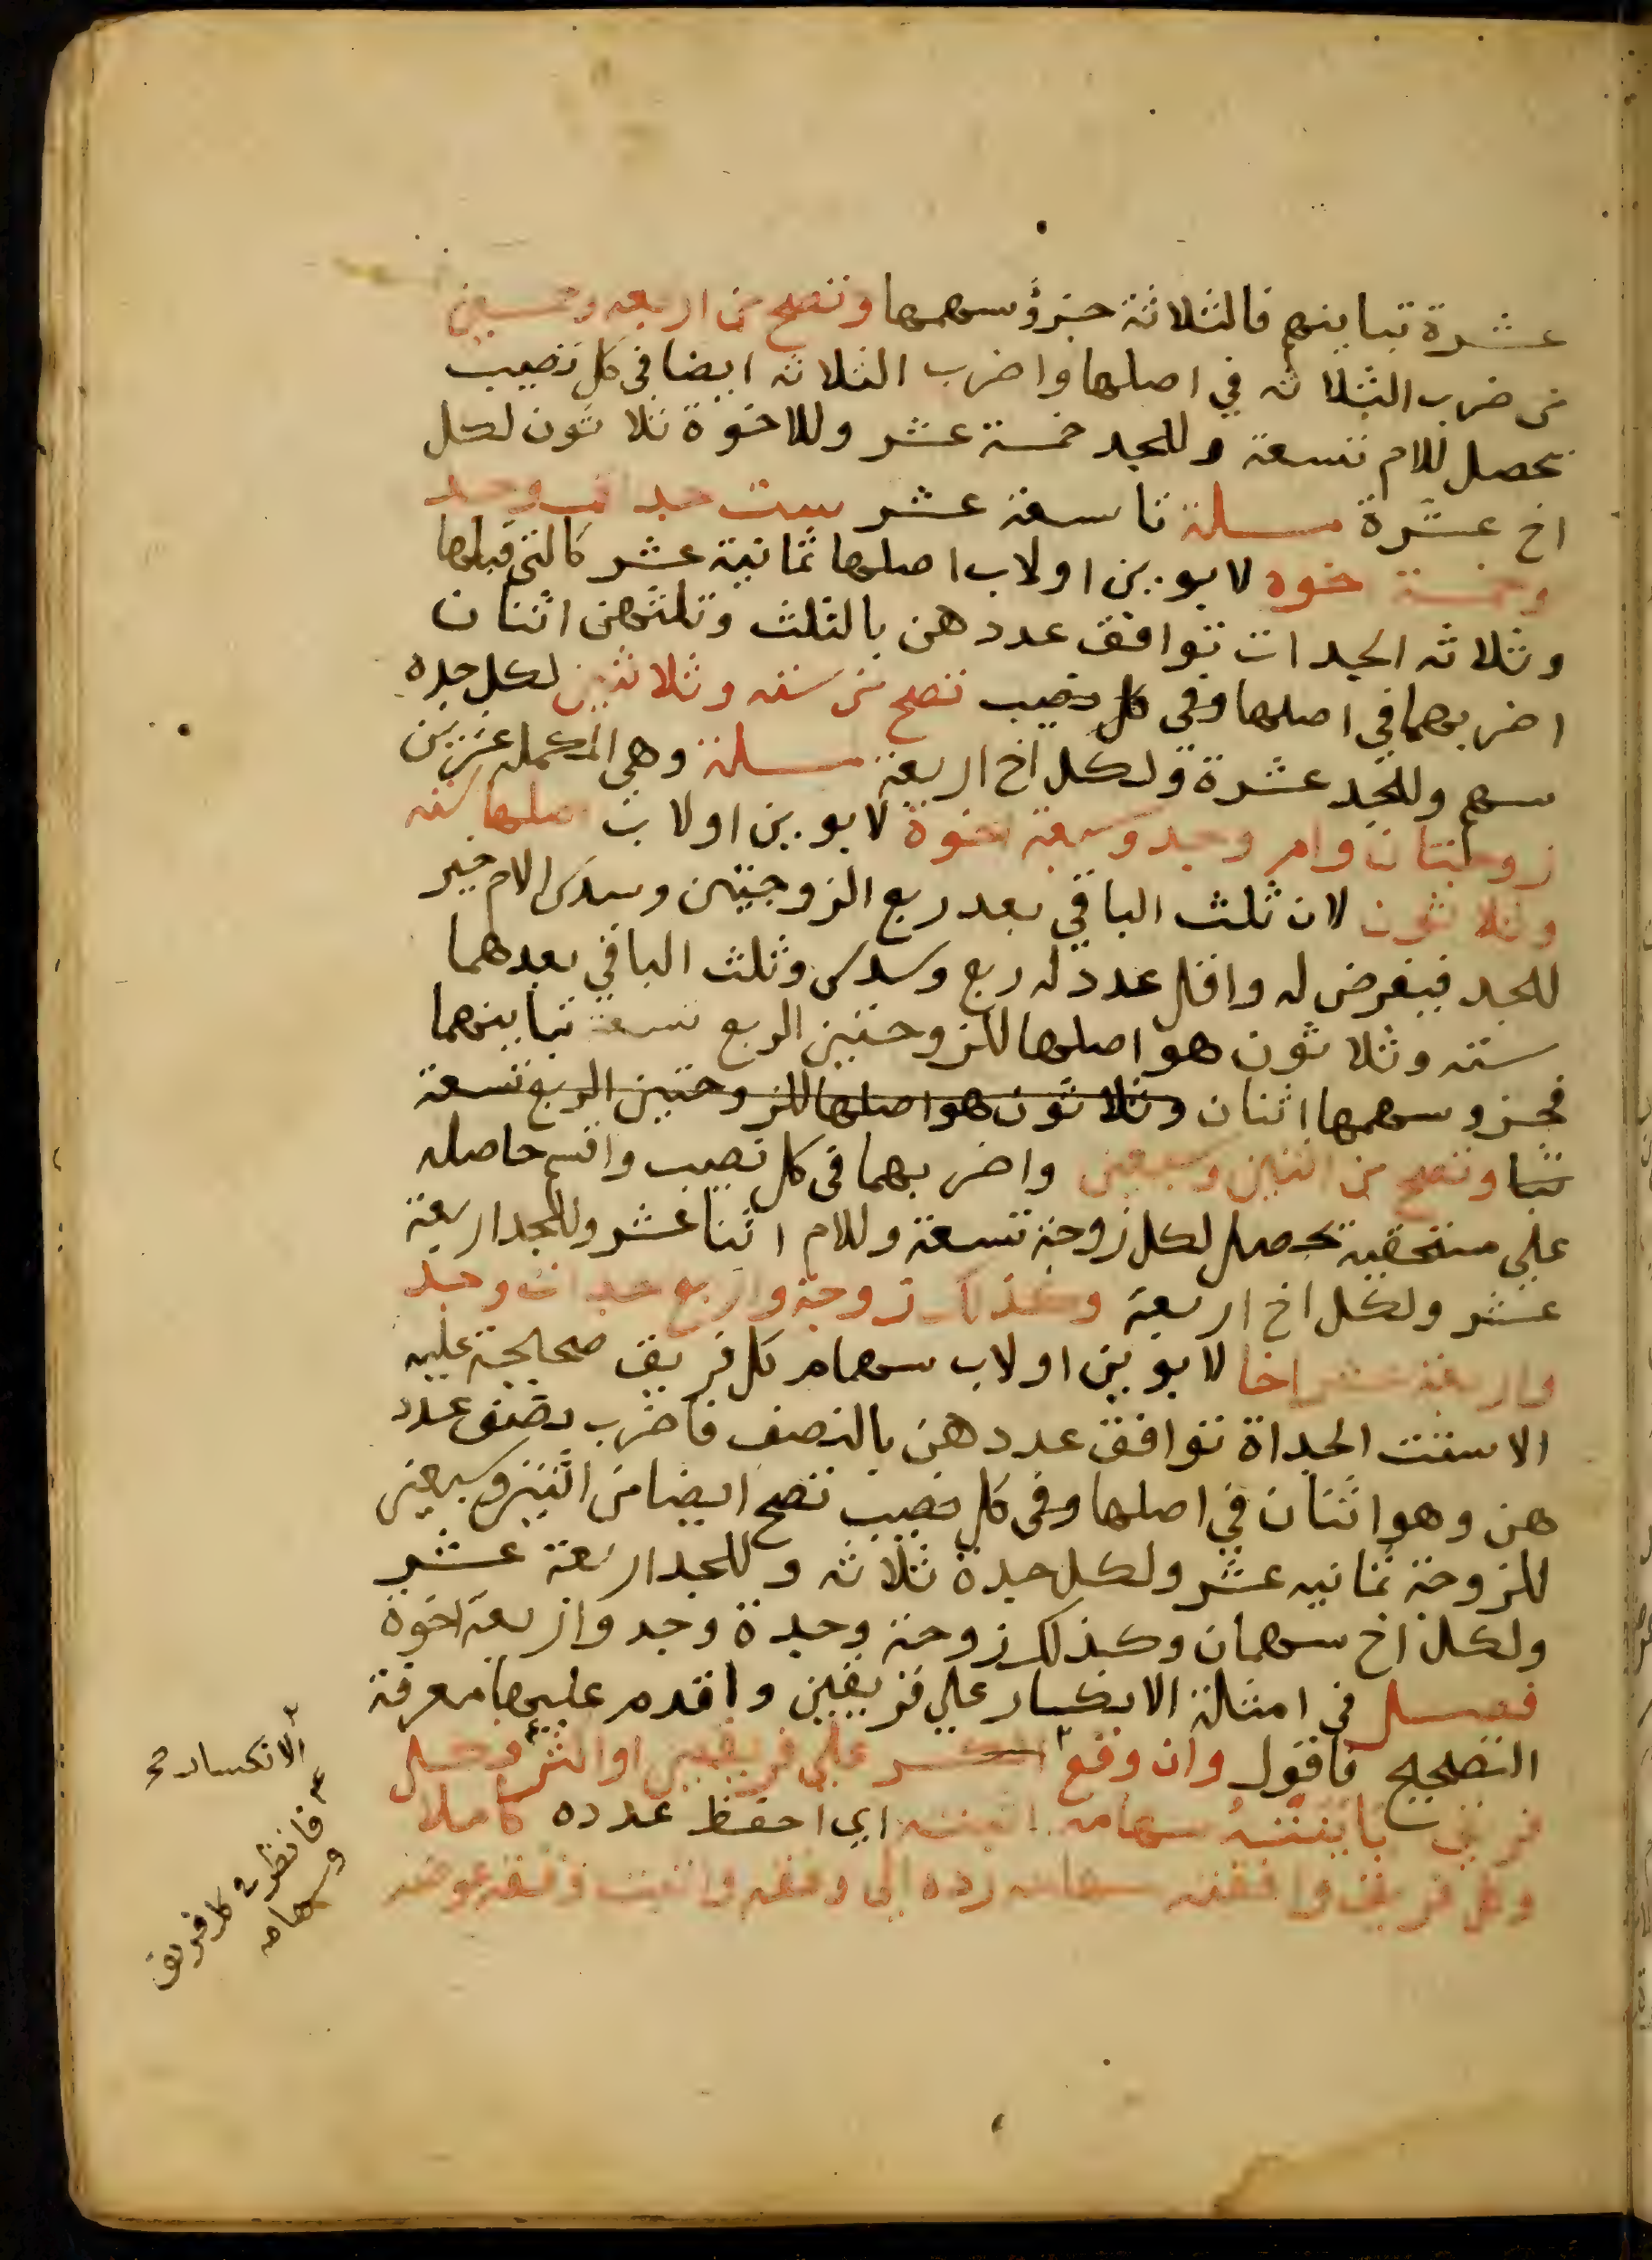 عشرة تباينهم فالثلاثة جزؤ سهمها وتصح من اربعه وخمسين
من ضرب الثلاثه في اصلها واضرب الثلاثه ايضا في كل نصيب
يحصل للام تسعة وللجد خمسة عشر وللاخوة ثلاثون لكل
اخ عشرة مسلة تاسعة عشر ست جدات وجد
وخمسة خوه لابوين اولاب اصلها ثمانية عشر كالتي قبلها
وثلاثه الجدات توافق عددهن بالثلث وثلثهن اثنان
اضربهما في اصلها وفي كل نصيب تصح من سته وثلاثين لكل جده
سهم وللجد عشرة ولكل اخ اربعة مسلة وهي المكمله عشرين
زوجتان وام وجد وسبعة اخوة لابوين اولاب اصلها سته
وثلاثون لان ثلث الباقي بعد ربع الزوجتين وسدس الام خير
للجد فيفرض له واقل عدد له ربع وسدس وثلث الباقي بعدهما
سته وثلاثون هو اصلها للزوجتين الربع تسعة تباينهما
فجزو سهمها اثنان وثلاثون هو اصلها للزوجتين الربع تسعة
تبا وتصح من اثنين وسبعين واضربهما في كل نصيب واقسم حاصله
علي مستحقيه يحصل لكل زوجة تسعة وللام اثنا عشر وللجد اربعة
عشر ولكل اخ اربعة وكذلك زوجة واربع جدات وجد
واربعة عشر اخا لابوين اولاب سهام كل فريق صحيحة عليه
الا ستت الجداة توافق عددهن بالنصف فاضرب نصف عدد
هن وهو اثنان في اصلها وفي كل نصيب تصح ايضا من اثنين وسبعين
للزوجة ثمانيه عشر ولكل جدة ثلاثه وللجد اربعة عشر
ولكل اخ سهمان وكذلك زوجة وجدة وجد واربعة اخوة
فصل في امثلة الانكسار علي فريقين واقدم عليها معرفة
التصحيح فاقول وان وقع الكسر علي فريقين او اكثر وكل
فريق باينته سهامه اثبته اي احفظ عدده كاملا
وكل فريق وافقته سهامه رده الي وفقه واثبت وفقه عوضه
الانكسار صح
فانظر في كل فريق
وسهامه